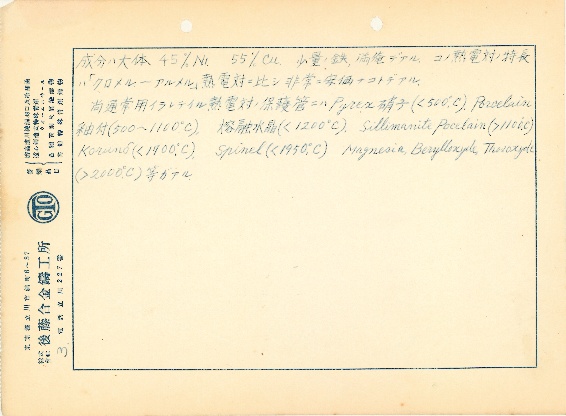 成分ハ大体 45% Ni 55% Cu 少量ノ鉄、満俺デアル コノ熱電対ノ特長
ハ「クロメル—アルメル」熱電対ニ比シ非常ニ安価ナコトデアル.
尚通常用イラレテイル熱電対ノ保護管ニハ Pyrex 硝子(<500℃), Porcelain
釉付(500〜1100℃), 熔融水晶(<1200℃), Sillimanite Porcelain(>1100℃)
Korund(<1900℃), Spinel(<1950℃) Magnesia, Berylloxyde, Thoroxyde
(>2000℃)等ガアル
GTO
株式会社 後藤合金鋳工所
電話立川 227番
3.